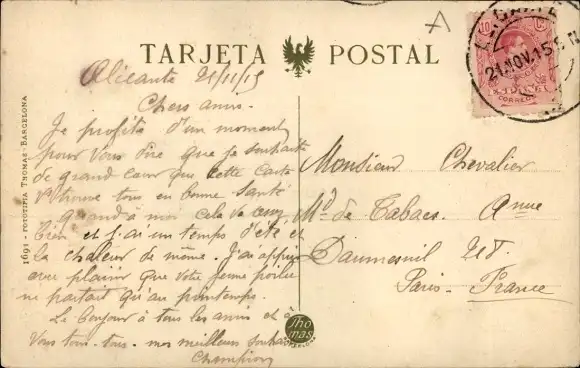 TARJETA POSTAL
Alicante 21/11/15
Chers amis.
Je profite d'un moment
pour vous dire que je souhaite
de grand cœur que cette carte
vs trouve tous en bonne santé
quand à moi cela va assez
bien et j'ai un temps d'été et
la chaleur de même. J'ai appris
avec plaisir que votre jeune poilu
ne partait qu'au printemps.
Le bonjour à tous les amis et à
vous tous - tous - mes meilleurs souhaits
Champion
Monsieur Chevalier
Md de Tabacs. Anue
Daumesnil 218.
Paris - France
1691 - FOTOTIPIA THOMAS - BARCELONA
Thomas
BARCELONA
10 Cs
CORREOS
21.NOV.15